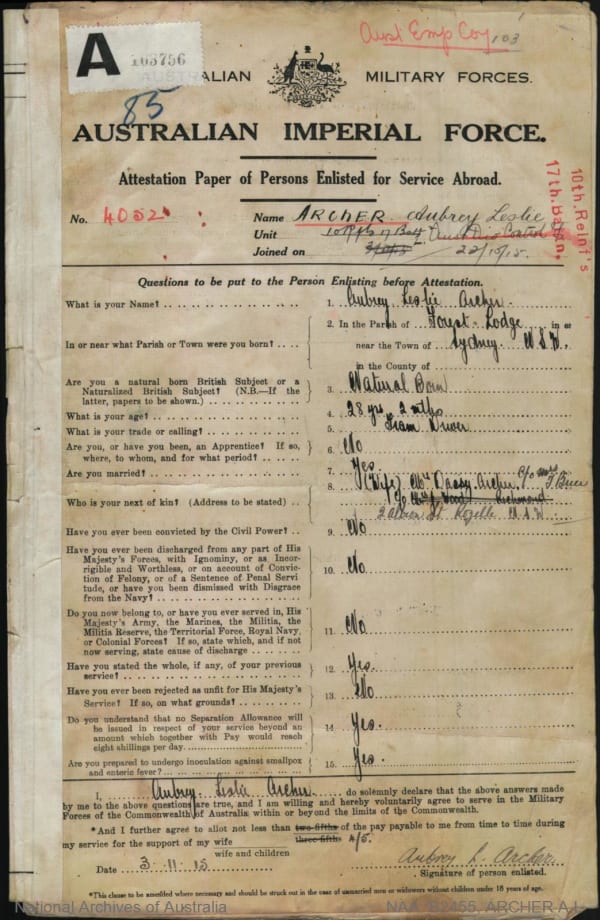 Aust Emp Coy 103
A 103756
AUSTRALIAN MILITARY FORCES.
85
AUSTRALIAN IMPERIAL FORCE.
Attestation Paper of Persons Enlisted for Service Abroad.
10th. Reinf's
17th. Battn.
No. 4052
Name ARCHER Aubrey Leslie
Unit
Joined on 22/10/15.
Questions to be put to the Person Enlisting before Attestation.
What is your Name? 1. Aubrey Leslie Archer.
In or near what Parish or Town were you born? 2. In the Parish of Forest Lodge in or
near the Town of Sydney N S W,
in the County of
Are you a natural born British Subject or a
Naturalized British Subject? (N.B.—If the
latter, papers to be shown.) 3. Natural Born
What is your age? 4. 28 yrs 2 mths
What is your trade or calling? 5. Tram Driver
Are you, or have you been, an Apprentice? If so,
where, to whom, and for what period? 6. No
Are you married? 7. Yes
Who is your next of kin? (Address to be stated) 8. (Wife) Mrs Daisy Archer, c/o Mrs
Richmond
St Rozelle N.S.W
Have you ever been convicted by the Civil Power? 9. No
Have you ever been discharged from any part of His
Majesty's Forces, with Ignominy, or as Incor-
rigible and Worthless, or on account of Convic-
tion of Felony, or of a Sentence of Penal Servi-
tude, or have you been dismissed with Disgrace
from the Navy? 10. No.
Do you now belong to, or have you ever served in, His
Majesty's Army, the Marines, the Militia, the
Militia Reserve, the Territorial Force, Royal Navy,
or Colonial Forces? If so, state which, and if not
now serving, state cause of discharge 11. No
Have you stated the whole, if any, of your previous
service? 12. Yes.
Have you ever been rejected as unfit for His Majesty's
Service? If so, on what grounds? 13. No
Do you understand that no Separation Allowance will
be issued in respect of your service beyond an
amount which together with Pay would reach
eight shillings per day 14. Yes.
Are you prepared to undergo inoculation against smallpox
and enteric fever? 15. Yes.
I, Aubrey Leslie Archer do solemnly declare that the above answers made
by me to the above questions are true, and I am willing and hereby voluntarily agree to serve in the Military
Forces of the Commonwealth of Australia within or beyond the limits of the Commonwealth.
*And I further agree to allot not less than two-fifths of the pay payable to me from time to time during
my service for the support of my wife three-fifths 4/5.
wife and children
Date 3-11-15
Aubrey L. Archer
Signature of person enlisted.
*This clause to be amended where necessary and should be struck out in the case of unmarried men or widowers without children under 18 years of age.
National Archives of Australia
NAA: B2455, ARCHER A L